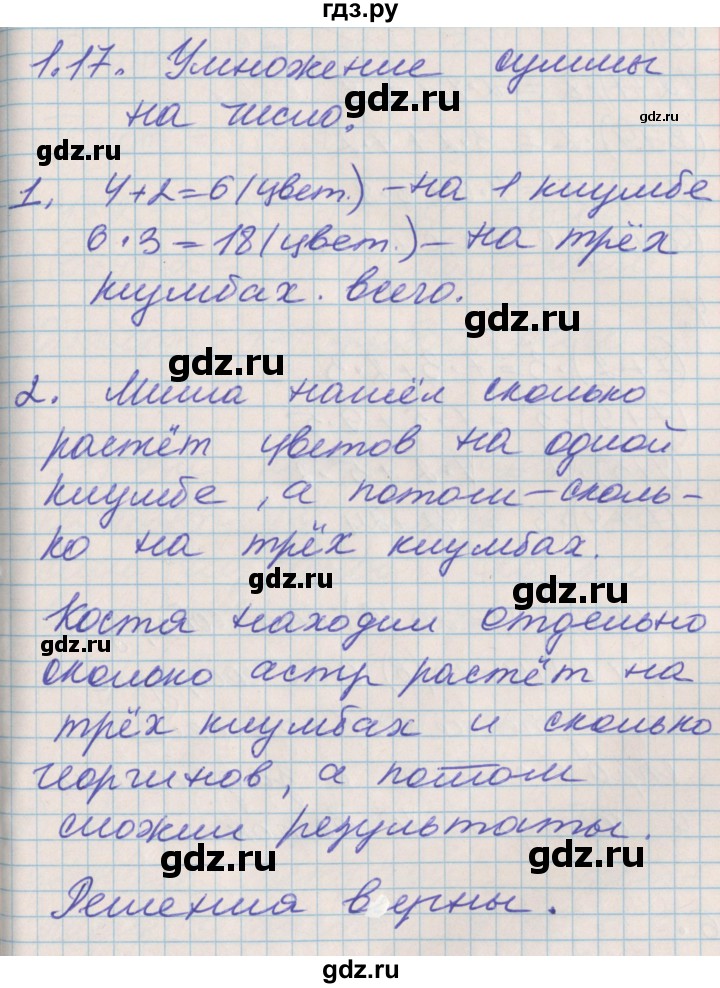 гдз.ру
1.17. Умножение суммы
gdz.ru
gdz.ru
на число.
gdz.ru
1. 4+2=6(цвет.) – на 1 клумбе
6·3=18(цвет.) – на трёх
gdz.ru
клумбах. всего.
gdz.ru
gdz.ru
2. Миша нашёл сколько
растёт цветов на одной
gdz.ru
клумбе, а потом – сколь-
ко на трёх клумбах.
gdz.ru
gdz.ru
Костя находил отдельно
gdz.ru
сколько астр растёт на
трёх клумбах и сколько
gdz.ru
георгинов, а потом
сложил результаты.
gdz.ru
gdz.ru
Решения верны.
gdz.ru